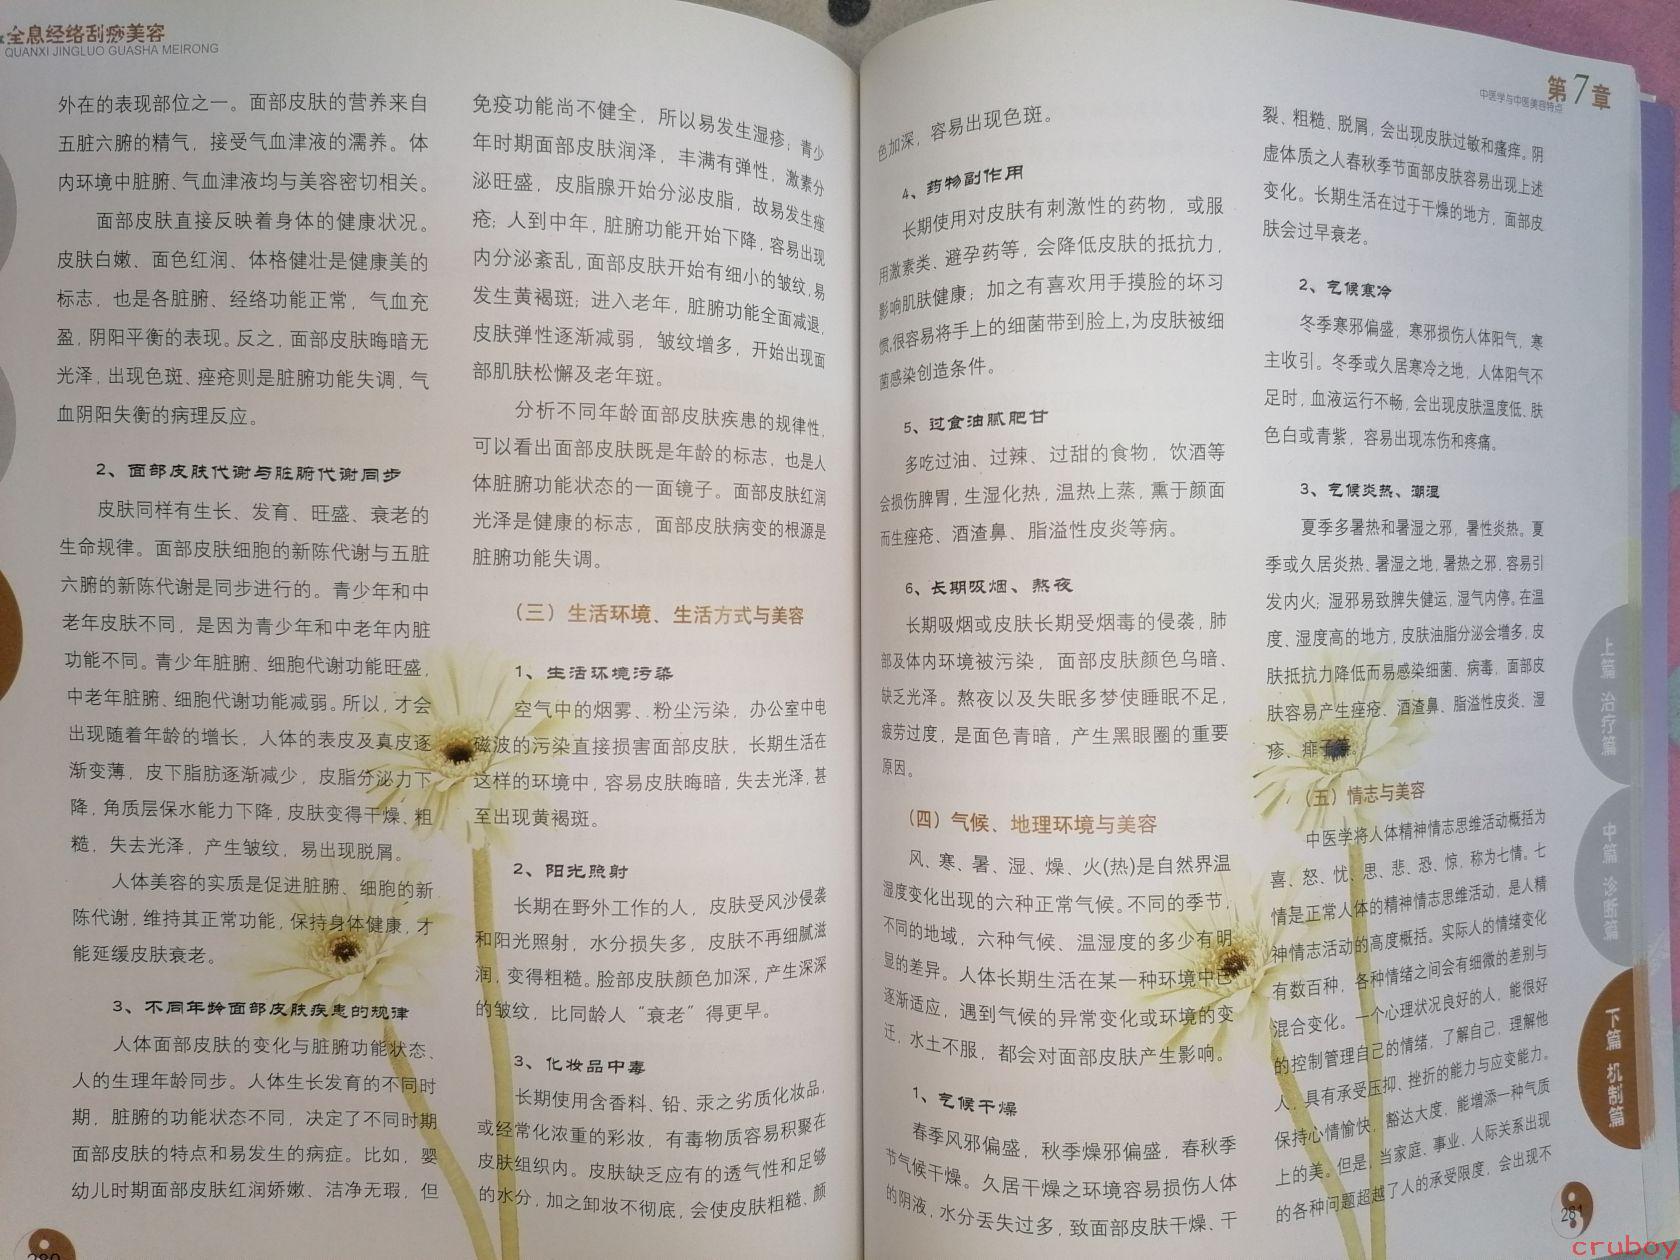 全息经络刮痧美容
QUANXI JINGLUO GUASHA MEIRONG
外在的表现部位之一。面部皮肤的营养来自
五脏六腑的精气，接受气血津液的濡养。体
内环境中脏腑、气血津液均与美容密切相关。
面部皮肤直接反映着身体的健康状况。
皮肤白嫩、面色红润、体格健壮是健康美的
标志，也是各脏腑、经络功能正常，气血充
盈，阴阳平衡的表现。反之，面部皮肤晦暗无
光泽，出现色斑、痤疮则是脏腑功能失调，气
血阴阳失衡的病理反应。
2、面部皮肤代谢与脏腑代谢同步
皮肤同样有生长、发育、旺盛、衰老的
生命规律。面部皮肤细胞的新陈代谢与五脏
六腑的新陈代谢是同步进行的。青少年和中
老年皮肤不同，是因为青少年和中老年内脏
功能不同。青少年脏腑、细胞代谢功能旺盛，
中老年脏腑、细胞代谢功能减弱。所以，才会
出现随着年龄的增长，人体的表皮及真皮逐
渐变薄，皮下脂肪逐渐减少，皮脂分泌力下
降，角质层保水能力下降，皮肤变得干燥、粗
糙，失去光泽，产生皱纹，易出现脱屑。
人体美容的实质是促进脏腑、细胞的新
陈代谢，维持其正常功能，保持身体健康，才
能延缓皮肤衰老。
3、不同年龄面部皮肤疾患的规律
人体面部皮肤的变化与脏腑功能状态、
人的生理年龄同步。人体生长发育的不同时
期，脏腑的功能状态不同，决定了不同时期
面部皮肤的特点和易发生的病症。比如，婴
幼儿时期面部皮肤红润娇嫩、洁净无瑕，但
免疫功能尚不健全，所以易发生湿疹；青少
年时期面部皮肤润泽，丰满有弹性，激素分
泌旺盛，皮脂腺开始分泌皮脂，故易发生痤
疮；人到中年，脏腑功能开始下降，容易出现
内分泌紊乱，面部皮肤开始有细小的皱纹，易
发生黄褐斑；进入老年，脏腑功能全面减退，
皮肤弹性逐渐减弱，皱纹增多，开始出现面
部肌肤松懈及老年斑。
分析不同年龄面部皮肤疾患的规律性，
可以看出面部皮肤既是年龄的标志，也是人
体脏腑功能状态的一面镜子。面部皮肤红润
光泽是健康的标志，面部皮肤病变的根源是
脏腑功能失调。
（三）生活环境、生活方式与美容
1、生活环境污染
空气中的烟雾、粉尘污染，办公室中电
磁波的污染直接损害面部皮肤，长期生活在
这样的环境中，容易皮肤晦暗，失去光泽，甚
至出现黄褐斑。
2、阳光照射
长期在野外工作的人，皮肤受风沙侵袭
和阳光照射，水分损失多，皮肤不再细腻滋
润，变得粗糙。脸部皮肤颜色加深，产生深深
的皱纹，比同龄人“衰老”得更早。
3、化妆品中毒
长期使用含香料、铅、汞之劣质化妆品，
或经常化浓重的彩妆，有毒物质容易积聚在
皮肤组织内。皮肤缺乏应有的透气性和足够
的水分，加之卸妆不彻底，会使皮肤粗糙、颜
280
中医学与中医美容特点
第7章
色加深，容易出现色斑。
4、药物副作用
长期使用对皮肤有刺激性的药物，或服
用激素类、避孕药等，会降低皮肤的抵抗力，
影响肌肤健康；加之有喜欢用手摸脸的坏习
惯，很容易将手上的细菌带到脸上，为皮肤被细
菌感染创造条件。
5、过食油腻肥甘
多吃过油、过辣、过甜的食物，饮酒等
会损伤脾胃，生湿化热，温热上蒸，熏于颜面
而生痤疮、酒渣鼻、脂溢性皮炎等病。
6、长期吸烟、熬夜
长期吸烟或皮肤长期受烟毒的侵袭，肺
部及体内环境被污染，面部皮肤颜色乌暗、
缺乏光泽。熬夜以及失眠多梦使睡眠不足，
疲劳过度，是面色青暗，产生黑眼圈的重要
原因。
（四）气候、地理环境与美容
风、寒、暑、湿、燥、火(热)是自然界温
湿度变化出现的六种正常气候。不同的季节，
不同的地域，六种气候、温湿度的多少有明
显的差异。人体长期生活在某一种环境中已
逐渐适应，遇到气候的异常变化或环境的变
迁，水土不服，都会对面部皮肤产生影响。
1、气候干燥
春季风邪偏盛，秋季燥邪偏盛，春秋季
节气候干燥。久居干燥之环境容易损伤人体
的阴液，水分丢失过多，致面部皮肤干燥、干
裂、粗糙、脱屑，会出现皮肤过敏和瘙痒。阴
虚体质之人春秋季节面部皮肤容易出现上述
变化。长期生活在过于干燥的地方，面部皮
肤会过早衰老。
2、气候寒冷
冬季寒邪偏盛，寒邪损伤人体阳气，寒
主收引。冬季或久居寒冷之地，人体阳气不
足时，血液运行不畅，会出现皮肤温度低、肤
色白或青紫，容易出现冻伤和疼痛。
3、气候炎热、潮湿
夏季多暑热和暑湿之邪，暑性炎热。夏
季或久居炎热、暑湿之地，暑热之邪，容易引
发内火；湿邪易致脾失健运，湿气内停。在温
度、湿度高的地方，皮肤油脂分泌会增多，皮
肤抵抗力降低而易感染细菌、病毒，面部皮
肤容易产生痤疮、酒渣鼻、脂溢性皮炎、湿
疹、痱子等。
（五）情志与美容
中医学将人体精神情志思维活动概括为
喜、怒、忧、思、悲、恐、惊，称为七情。七
情是正常人体的精神情志思维活动，是人精
神情志活动的高度概括。实际人的情绪变化
有数百种，各种情绪之间会有细微的差别与
混合变化。一个心理状况良好的人，能很好
的控制管理自己的情绪，了解自己，理解他
人，具有承受压抑、挫折的能力与应变能力。
保持心情愉快，豁达大度，能增添一种气质
上的美。但是，当家庭、事业、人际关系出现
的各种问题超越了人的承受限度，会出现不
上篇 治疗篇
中篇 诊断篇
下篇 机制篇
281
cruboy